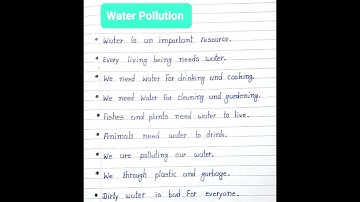 Water Pollution
• Water is an important resource.
• Every living being needs water.
• We need water for drinking and cooking.
• We need water for cleaning and gardening.
• Fishes and plants need water to live.
• Animals need water to drink.
• We are polluting our water.
• We through plastic and garbage.
• Dirty water is bad for everyone.